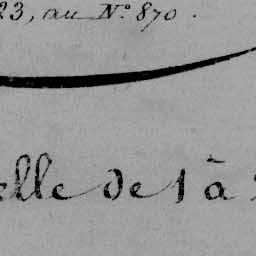 23, au N.º 870.
elle de 1 à